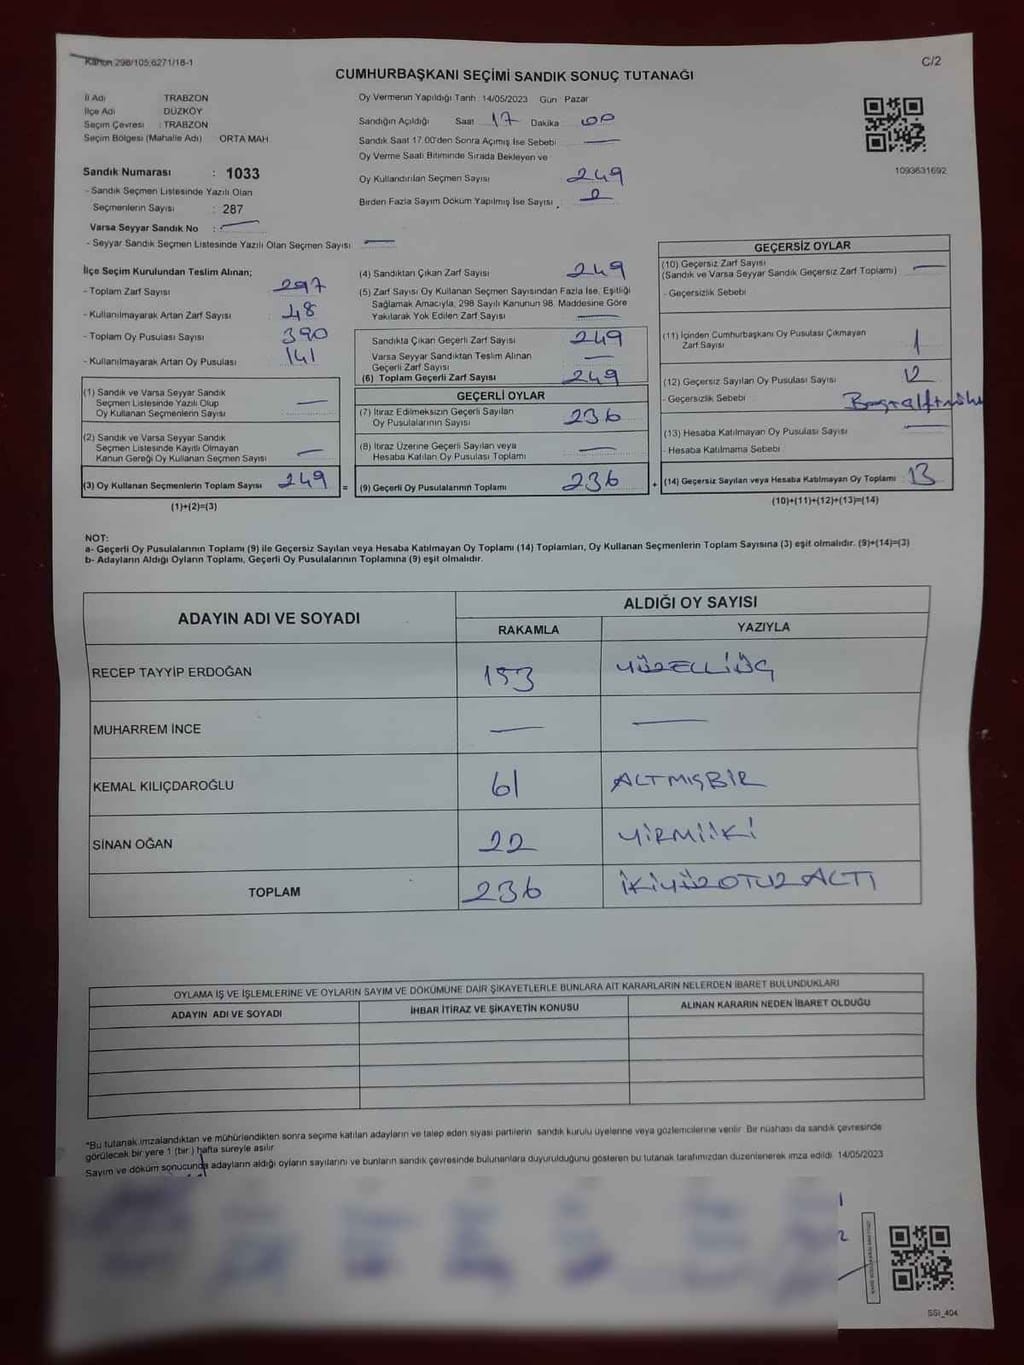 Kanun 298/105,6271/18-1
C/2
CUMHURBAŞKANI SEÇİMİ SANDIK SONUÇ TUTANAĞI
İl Adı TRABZON
İlçe Adı DÜZKÖY
Seçim Çevresi : TRABZON
Seçim Bölgesi (Mahalle Adı) ORTA MAH.
Sandık Numarası : 1033
- Sandık Seçmen Listesinde Yazılı Olan
Seçmenlerin Sayısı : 287
Varsa Seyyar Sandık No : —
- Seyyar Sandık Seçmen Listesinde Yazılı Olan Seçmen Sayısı —
Oy Vermenin Yapıldığı Tarih 14/05/2023 Gün Pazar
Sandığın Açıldığı Saat 17 Dakika 00
Sandık Saat 17.00'den Sonra Açılmış İse Sebebi —
Oy Verme Saati Bitiminde Sırada Bekleyen ve
Oy Kullandırılan Seçmen Sayısı 249
Birden Fazla Sayım Döküm Yapılmış İse Sayısı 2
1093631692
İlçe Seçim Kurulundan Teslim Alınan;
- Toplam Zarf Sayısı 297
- Kullanılmayarak Artan Zarf Sayısı 48
- Toplam Oy Pusulası Sayısı 390
- Kullanılmayarak Artan Oy Pusulası 141
(1) Sandık ve Varsa Seyyar Sandık
Seçmen Listesinde Yazılı Olup
Oy Kullanan Seçmenlerin Sayısı —
(2) Sandık ve Varsa Seyyar Sandık
Seçmen Listesinde Kayıtlı Olmayan
Kanun Gereği Oy Kullanan Seçmen Sayısı —
(3) Oy Kullanan Seçmenlerin Toplam Sayısı 249 =
(1)+(2)=(3)
(4) Sandıktan Çıkan Zarf Sayısı 249
(5) Zarf Sayısı Oy Kullanan Seçmen Sayısından Fazla İse, Eşitliği
Sağlamak Amacıyla, 298 Sayılı Kanunun 98. Maddesine Göre
Yakılarak Yok Edilen Zarf Sayısı —
Sandıkta Çıkan Geçerli Zarf Sayısı 249
Varsa Seyyar Sandıktan Teslim Alınan
Geçerli Zarf Sayısı —
(6) Toplam Geçerli Zarf Sayısı 249
GEÇERLİ OYLAR
(7) İtiraz Edilmeksizin Geçerli Sayılan
Oy Pusulalarının Sayısı 236
(8) İtiraz Üzerine Geçerli Sayılan veya
Hesaba Katılan Oy Pusulası Toplamı —
(9) Geçerli Oy Pusulalarının Toplamı 236 +
GEÇERSİZ OYLAR
(10) Geçersiz Zarf Sayısı
(Sandık ve Varsa Seyyar Sandık Geçersiz Zarf Toplamı) —
- Geçersizlik Sebebi
(11) İçinden Cumhurbaşkanı Oy Pusulası Çıkmayan
Zarf Sayısı 1
(12) Geçersiz Sayılan Oy Pusulası Sayısı 12
- Geçersizlik Sebebi
(13) Hesaba Katılmayan Oy Pusulası Sayısı —
- Hesaba Katılmama Sebebi
(14) Geçersiz Sayılan veya Hesaba Katılmayan Oy Toplamı 13
(10)+(11)+(12)+(13)=(14)
NOT:
a- Geçerli Oy Pusulalarının Toplamı (9) ile Geçersiz Sayılan veya Hesaba Katılmayan Oy Toplamı (14) Toplamları, Oy Kullanan Seçmenlerin Toplam Sayısına (3) eşit olmalıdır. (9)+(14)=(3)
b- Adayların Aldığı Oyların Toplamı, Geçerli Oy Pusulalarının Toplamına (9) eşit olmalıdır.
ADAYIN ADI VE SOYADI
ALDIĞI OY SAYISI
RAKAMLA YAZIYLA
RECEP TAYYİP ERDOĞAN 153 YÜZELLİÜÇ
MUHARREM İNCE — —
KEMAL KILIÇDAROĞLU 61 ALTMIŞBİR
SİNAN OĞAN 22 YİRMİİKİ
TOPLAM 236 İKİYÜZOTUZALTI
OYLAMA İŞ VE İŞLEMLERİNE VE OYLARIN SAYIM VE DÖKÜMÜNE DAİR ŞİKAYETLERLE BUNLARA AİT KARARLARIN NELERDEN İBARET BULUNDUKLARI
ADAYIN ADI VE SOYADI İHBAR İTİRAZ VE ŞİKAYETİN KONUSU ALINAN KARARIN NEDEN İBARET OLDUĞU
"Bu tutanak imzalandıktan ve mühürlendikten sonra seçime katılan adayların ve talep eden siyasi partilerin sandık kurulu üyelerine veya gözlemcilerine verilir. Bir nüshası da sandık çevresinde
görülecek bir yere 1 (bir) hafta süreyle asılır.
Sayım ve döküm sonucunda adayların aldığı oyların sayılarını ve bunların sandık çevresinde bulunanlara duyurulduğunu gösteren bu tutanak tarafımızdan düzenlenerek imza edildi. 14/05/2023
SSI_404